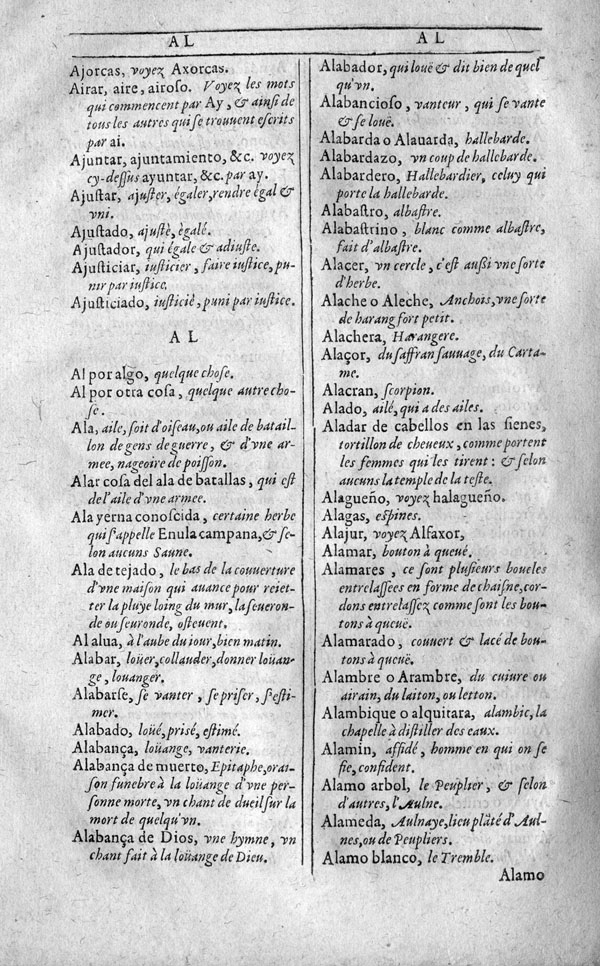 A L
A L
Ajorcas, voyez Axorcas.
Airar, aire, airoso. Voyez les mots
qui commencent par Ay, & ainsi de
tous les autres qui se trouuent escrits
par ai.
Ajuntar, ajuntamiento, &c. voyez
cy-dessus ayuntar, &c. par ay.
Ajustar, ajuster, égaler, rendre égal &
vni.
Ajustado, ajustè, égalé.
Ajustador, qui égale & adiuste.
Ajusticiar, iusticier, faire iustice, pu-
nir par iustice.
Ajusticiado, iusticiè, puni par iustice.
A L
Al por algo, quelque chose.
Al por otra cosa, quelque autre cho-
se.
Ala, aile, soit d'oiseau, ou aile de batail-
lon de gens de guerre, & d'vne ar-
mee, nageoire de poisson.
Alar cosa del ala de batallas, qui est
de l'aile d'vne armee.
Ala yerna conoscida, certaine herbe
qui s'appelle Enula campana, & se-
lon aucuns Saune.
Ala de tejado, le bas de la couuerture
d'vne maison qui auance pour reiet-
ter la pluye loing du mur, la seueron-
de ou seuronde, osteuent.
Al alua, à l'aube du jour, bien matin.
Alabar, loüer, collauder, donner loüan-
ge, louanger.
Alabarse, se vanter, se priser, s'esti-
mer.
Alabado, loüé, prisé, estimé.
Alabança, loüange, vanterie.
Alabança de muerto, Epitaphe, orai-
son funebre à la loüange d'vne per-
sonne morte, vn chant de dueil sur la
mort de quelqu'vn.
Alabança de Dios, vne hymne, vn
chant fait à la loüange de Dieu.
Alabador, qui louë & dit bien de quel
qu'vn.
Alabancioso, vanteur, qui se vante
& se louë.
Alabarda o Alauarda, hallebarde.
Alabardazo, vn coup de hallebarde.
Alabardero, Hallebardier, celuy qui
porte la hallebarde.
Alabastro, albastre.
Alabastrino, blanc comme albastre,
fait d'albastre.
Alacer, vn cercle, c'est außi vne sorte
d'herbe.
Alache o Aleche, Anchois, vne sorte
de harang fort petit.
Alachera, Harangere.
Alaçor, du saffran sauuage, du Carta-
me.
Alacran, scorpion.
Alado, ailé, qui a des ailes.
Aladar de cabellos en las sienes,
tortillon de cheueux, comme portent
les femmes qui les tirent: & selon
aucuns la temple de la teste.
Alagueño, voyez halagueño.
Alagas, espines.
Alajur, voyez Alfaxor,
Alamar, bouton à queuë.
Alamares, ce sont plusieurs boucles
entrelassées en forme de chaisne, cor-
dons entrelassez comme sont les bou-
tons à queuë.
Alamarado, couuert & lacé de bou-
tons à queuë.
Alambre o Arambre, du cuiure ou
airain, du laiton, ou letton.
Alambique o alquitara, alambic, la
chapelle à distiller des eaux.
Alamin, affidé, homme en qui on se
fie, confident.
Alamo arbol, le Peuplier, & selon
d'autres, l'Aulne.
Alameda, Aulnaye, lieu plãté d'Aul-
nes, ou de Peupliers.
Alamo blanco, le Tremble.
Alamo